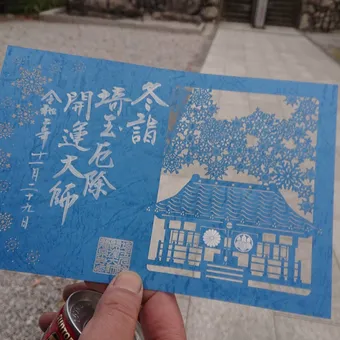 冬詣
埼玉厄除
開運大師
令和二年 十一月二十九日